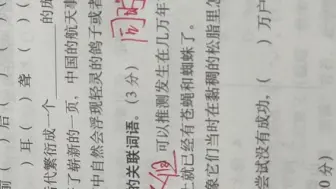 前（ ）后（ ）（
（ ）耳（ ）聋（
代繁衍成一个 的庞
了崭新的一页，中国的航天事
中自然会浮现轻灵的鸽子或者
的关联词语。（3分） 同时
可以推测发生在几万年
上就已经有苍蝇和蜘蛛了。
象它们当时在黏稠的松脂里怎
尝试没有成功，（ ）万户
0分）